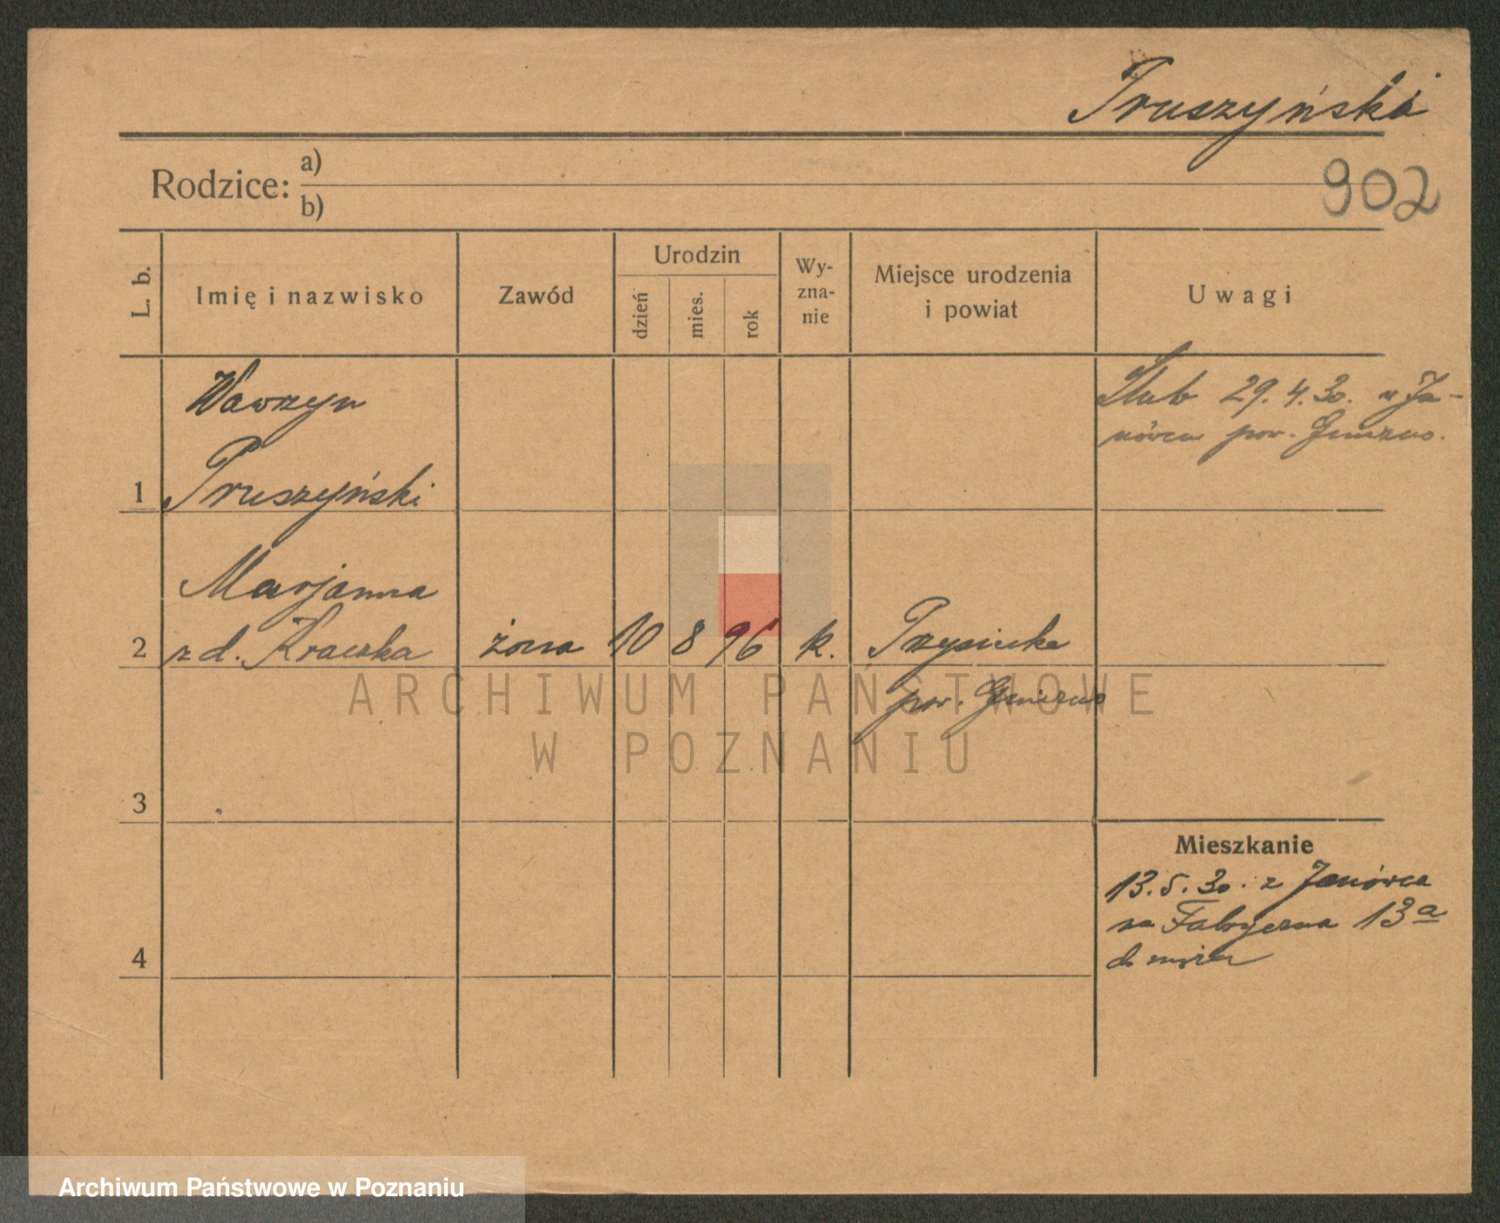 Pruszyński
902
Rodzice: a)
b)
L. b.
Imię i nazwisko
Zawód
Urodzin
dzień
mies.
rok
Wy-
zna-
nie
Miejsce urodzenia
i powiat
Uwagi
Wawrzyn
1 Pruszyński
Ślub 29.4.30. w Ja-
nówcu pow. Gniezno.
Marjanna
2 z d. Kraczka żona 10 8 96 k.
pow. Gniezno
3
4
Mieszkanie
13.5.30. z Janówca
na Fabryczna 13a
do męża
ARCHIWUM PAŃSTWOWE
W POZNANIU
Archiwum Państwowe w Poznaniu